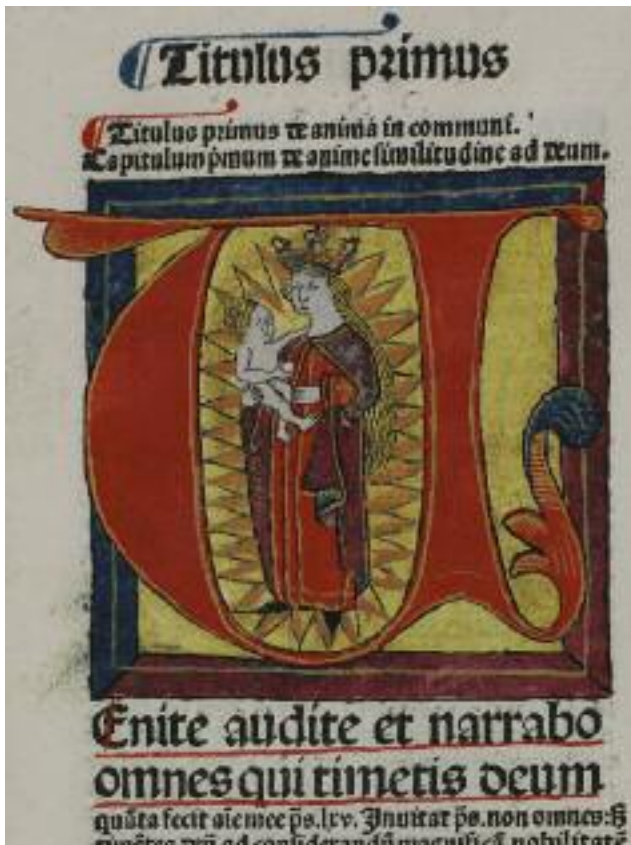 Titulus primus
Titulus primus de anima in communi.
Capitulum p̄mum de anime similitudine ad deum.
V
Enite audite et narrabo
omnes qui timetis deum
quāta fecit aīe mee p̄s.lxv. Inuitat p̄s.non omnes:
ad considerandū magnificā nobilitatē